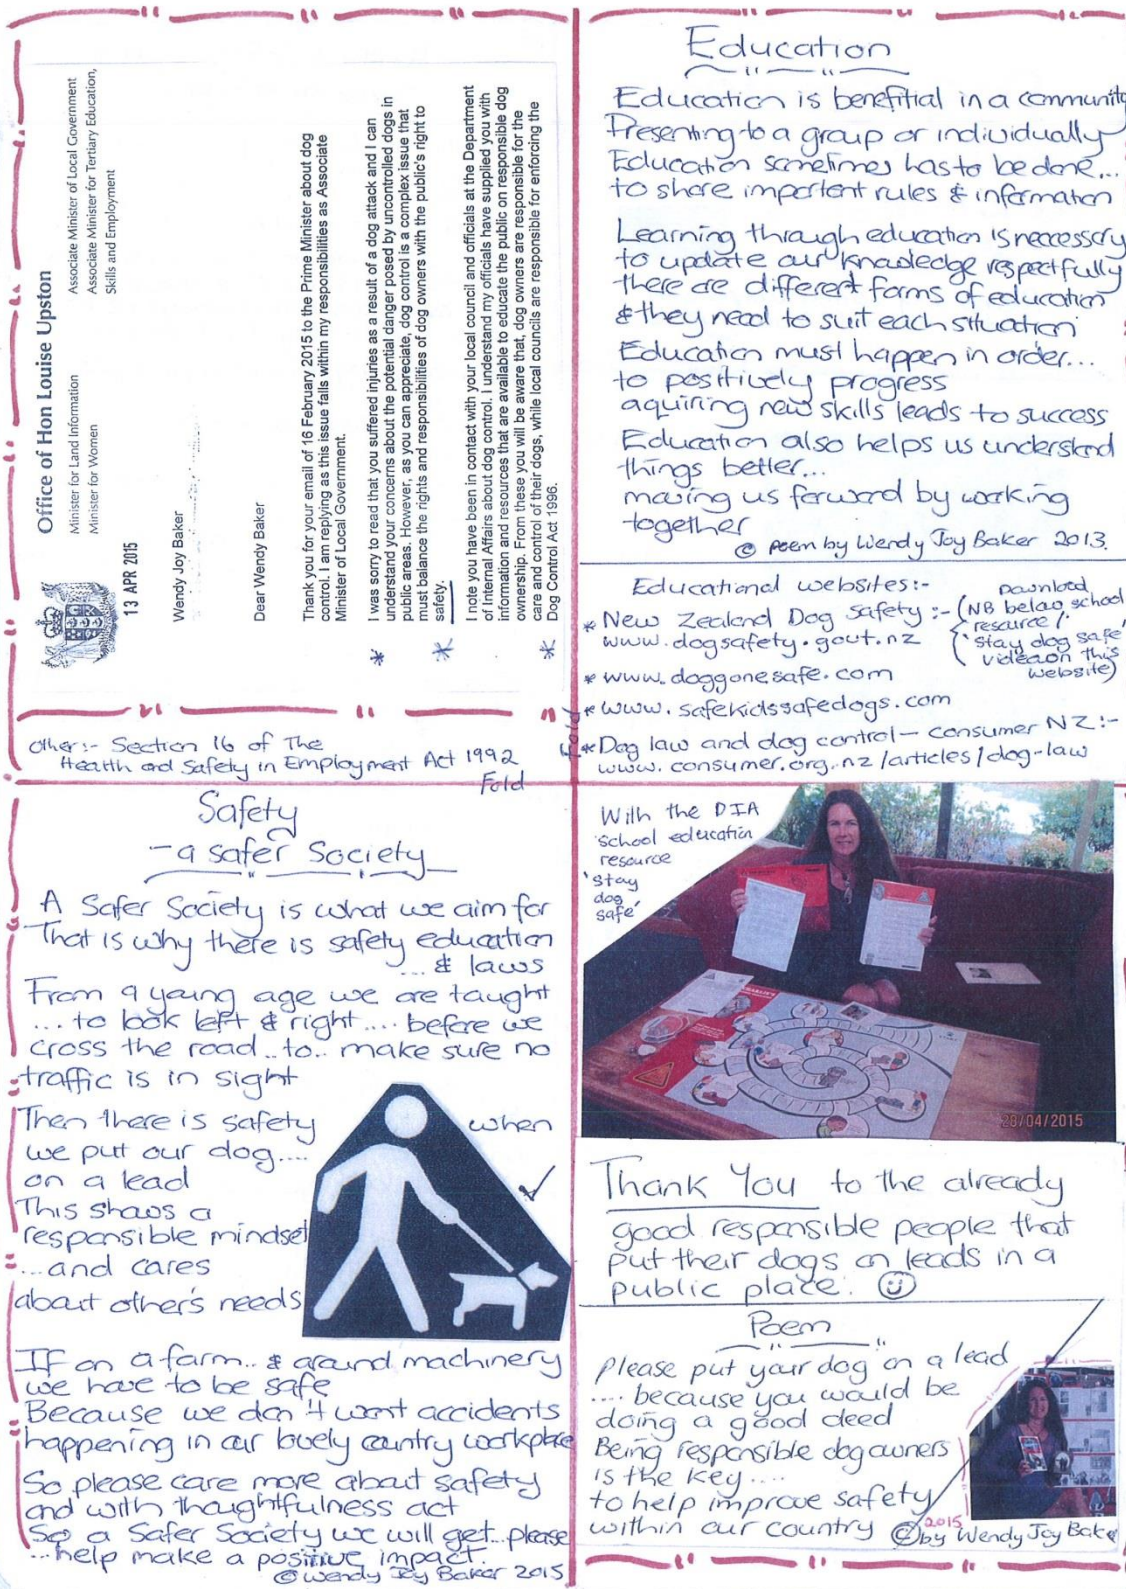 Office of Hon Louise Upston
Minister for Land Information
Minister for Women
Associate Minister of Local Government
Associate Minister for Tertiary Education,
Skills and Employment
13 APR 2015
Wendy Joy Baker
Dear Wendy Baker
Thank you for your email of 16 February 2015 to the Prime Minister about dog
control. I am replying as this issue falls within my responsibilities as Associate
Minister of Local Government.
I was sorry to read that you suffered injuries as a result of a dog attack and I can
understand your concerns about the potential danger posed by uncontrolled dogs in
public areas. However, as you can appreciate, dog control is a complex issue that
must balance the rights and responsibilities of dog owners with the public's right to
safety.
I note you have been in contact with your local council and officials at the Department
of Internal Affairs about dog control. I understand my officials have supplied you with
information and resources that are available to educate the public on responsible dog
ownership. From these you will be aware that, dog owners are responsible for the
care and control of their dogs, while local councils are responsible for enforcing the
Dog Control Act 1996.
Other:- Section 16 of The
Health and Safety in Employment Act 1992
Fold
Education
Education is benefitial in a community
Presenting to a group or individually
Education sometimes has to be done...
to share important rules & information
Learning through education is neccessary
to update our knowledge respectfully
there are different forms of education
& they need to suit each situation
Education must happen in order...
to positively progress
aquiring new skills leads to success
Education also helps us understand
things better...
moving us forward by working
together
© poem by Wendy Joy Baker 2013.
Educational websites:-
* New Zealand Dog Safety :-
www.dogsafety.govt.nz
Download
(NB below school
resource /.
'Stay dog safe'
video on this
website)
* www.doggonesafe.com
* www.safekidssafedogs.com
Fold
* Dog law and dog control - consumer NZ:-
www.consumer.org.nz/articles/dog-law
Safety
- a safer Society
A Safer Society is what we aim for
That is why there is safety education
... & laws
From a young age we are taught
... to look left & right.... before we
cross the road.. to.. make sure no
traffic is in sight
Then there is safety when
we put our dog....
on a lead
This shows a
responsible mindset
...and cares
about other's needs
If on a farm.. & around machinery
we have to be safe
Because we don't want accidents
happening in our lovely country workplace
So please care more about safety
and with thoughtfulness act
So a Safer Society we will get...please
...help make a positive impact.
© Wendy Joy Baker 2015
With the DIA
school education
resource
'stay
dog
safe'
28/04/2015
Thank You to the already
good responsible people that
put their dogs on leads in a
public place.
Poem
Please put your dog on a lead
.... because you would be
doing a good deed
Being responsible dog owners
is the key....
to help improve safety
within our country
2015
© by Wendy Joy Baker